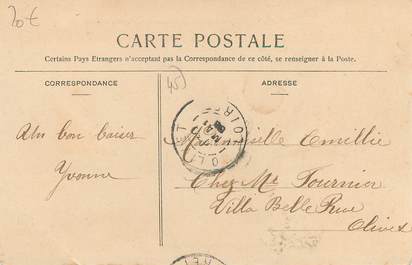 20€
CARTE POSTALE
Certains Pays Etrangers n'acceptant pas la Correspondance de ce côté, se renseigner à la Poste.
CORRESPONDANCE
ADRESSE
45
Un bon baiser
Yvonne
Mademoiselle Emillie
Chez Mr Fournier
Villa Belle Rue
Olivet
OLIVET
LOIRET